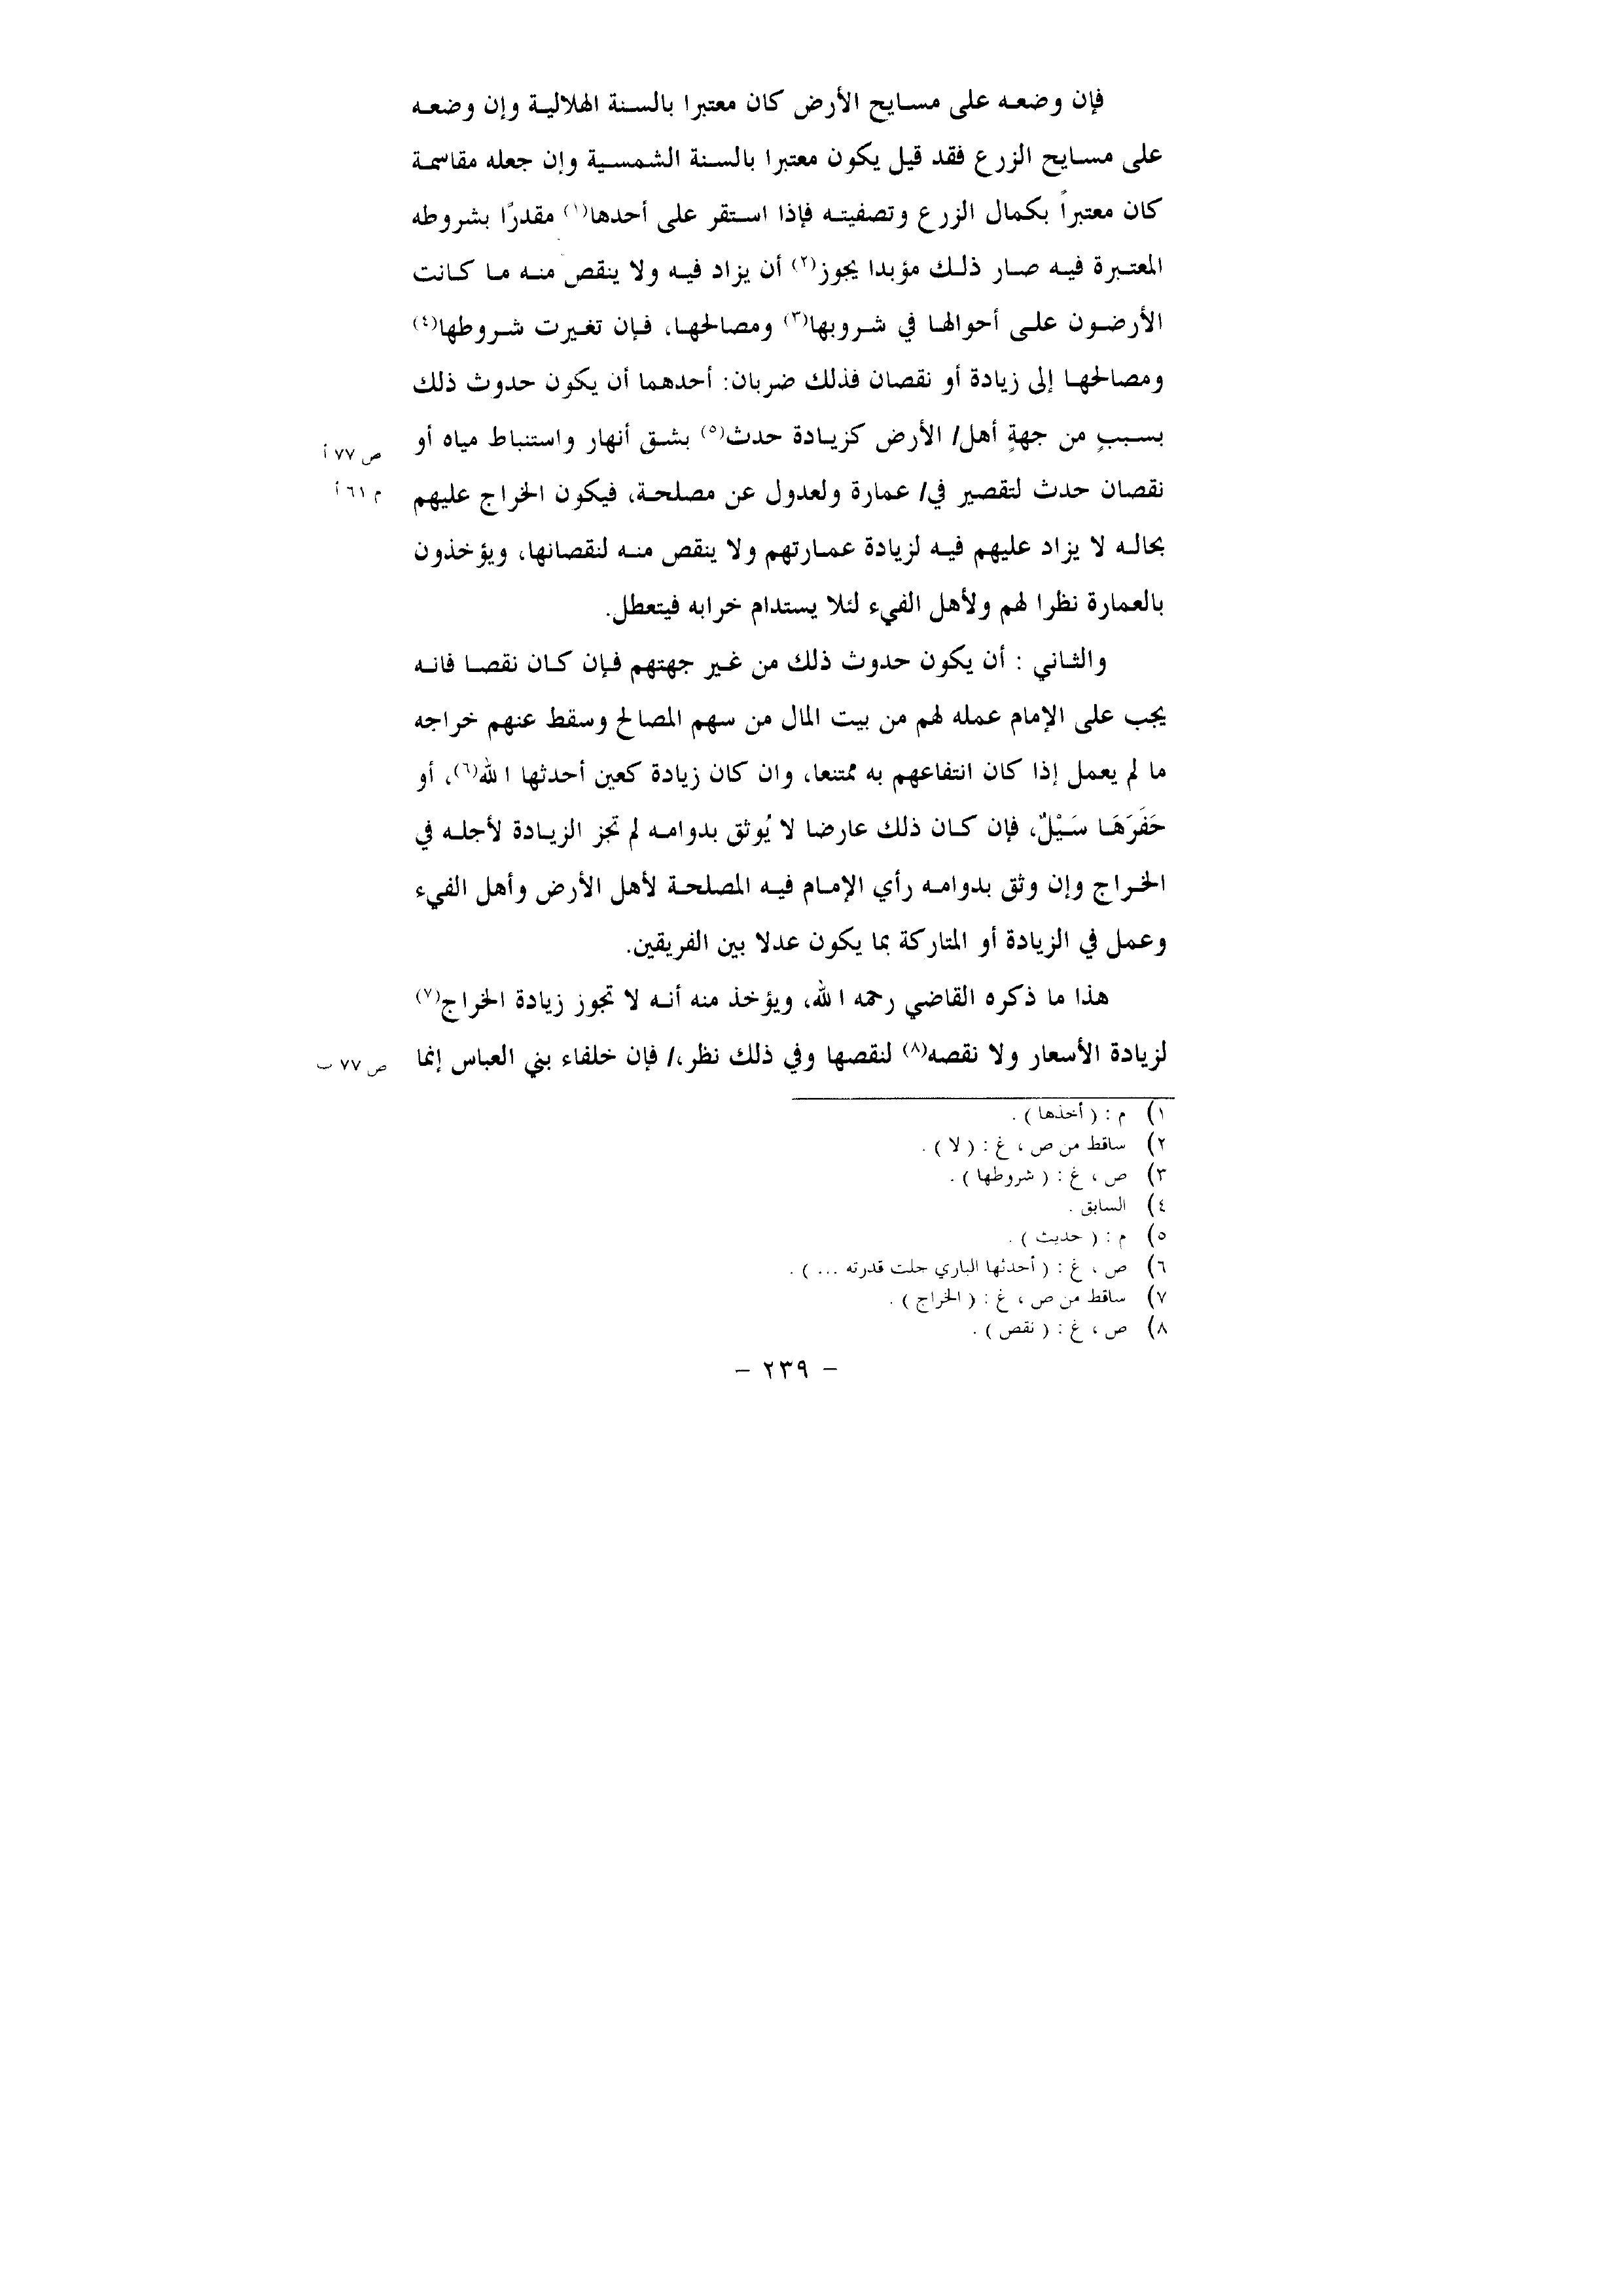 فإن وضعه على مسايح الأرض كان معتبرا بالسنة الهلالية وإن وضعه
على مسايح الزرع فقد قيل يكون معتبرا بالسنة الشمسية وإن جعله مقاسمة
كان معتبراً بكمال الزرع وتصفيته فإذا استقر على أحدها(١) مقدرًا بشروطه
المعتبرة فيه صار ذلك مؤبدا يجوز(٢) أن يزاد فيه ولا ينقص منه ما كانت
الأرضون على أحوالها في شروبها(٣) ومصالحها، فإن تغيرت شروطها(٤)
ومصالحها إلى زيادة أو نقصان فذلك ضربان: أحدهما أن يكون حدوث ذلك
بسببٍ من جهةٍ أهل/ الأرض كزيادة حدث(٥) بشق أنهار واستنباط مياه أو
ص ٧٧ أ
نقصان حدث لتقصير في/ عمارة ولعدول عن مصلحة، فيكون الخراج عليهم
م ٦١ أ
بحاله لا يزاد عليهم فيه لزيادة عمارتهم ولا ينقص منه لنقصانها، ويؤخذون
بالعمارة نظرا لهم ولأهل الفيء لئلا يستدام خرابه فيتعطل.
والثاني : أن يكون حدوث ذلك من غير جهتهم فإن كان نقصا فانه
يجب على الإمام عمله لهم من بيت المال من سهم المصالح وسقط عنهم خراجه
ما لم يعمل إذا كان انتفاعهم به ممتنعا، وان كان زيادة كعين أحدثها الله(٦)، أو
حَفَرَهَا سَيْلٌ، فإن كان ذلك عارضا لا يُوثق بدوامه لم تجز الزيادة لأجله في
الخراج وإن وثق بدوامه رأي الإمام فيه المصلحة لأهل الأرض وأهل الفيء
وعمل في الزيادة أو المتاركة بما يكون عدلا بين الفريقين.
هذا ما ذكره القاضي رحمه الله، ويؤخذ منه أنه لا تجوز زيادة الخراج(٧)
لزيادة الأسعار ولا نقصه(٨) لنقصها وفي ذلك نظر،/ فإن خلفاء بني العباس إنما
ص ٧٧ ب
١) م : ( أخذها ) .
٢) ساقط من ص ، غ : ( لا ) .
٣) ص ، غ : ( شروطها ) .
٤) السابق .
٥) م : ( حديث ) .
٦) ص ، غ : ( أحدثها الباري جلت قدرته ... ) .
٧) ساقط من ص ، غ : ( الخراج ) .
٨) ص ، غ : ( نقص ) .
– ٢٣٩ –